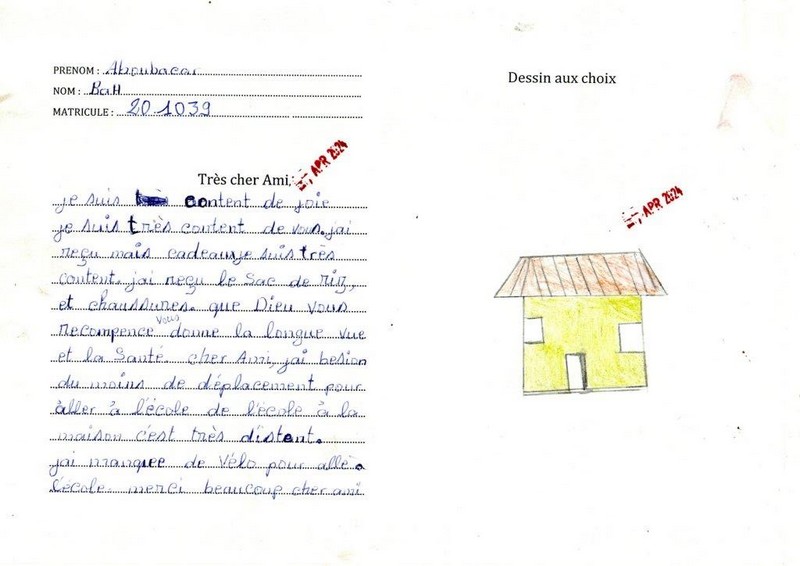 PRENOM : Aboubacar
NOM : BaH
MATRICULE : 20 1039
Très cher Ami,
APR 2024
je suis content de joie
je suis très content de vous. jai
reçu mais cadeaux je suis très
content. jai reçu le Sac de riz,
et chaussures. que Dieu vous
recompence vous donne la longue vue
et la Santé. cher Ami, jai besion
du moins de déplacement pour
aller à l'école de l'école à la
maison c'est très distent.
jai manquee de Vélo pour allé a
l'école. merci beaucoup cher ami
Dessin aux choix
APR 2024